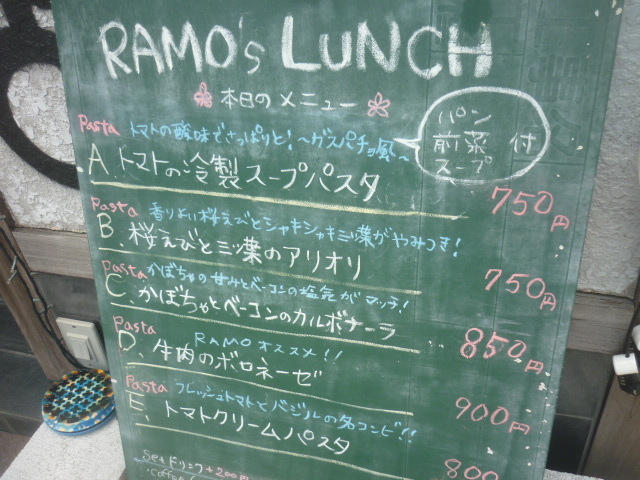 RAMO's LUNCH
本日のメニュー
Pasta トマトの酸味でさっぱりと!~ガスパチョ風~
パン
前菜 付
スープ
A.トマトの冷製スープパスタ
750円
Pasta 香りよい桜えびとシャキシャキ三ツ葉がやみつき!
B.桜えびと三ツ葉のアリオリ
750円
Pasta かぼちゃの甘みとベーコンの塩気がマッチ!
C.かぼちゃとベーコンのカルボナーラ
850円
Pasta RAMOオススメ!!
D.牛肉のボロネーゼ
900円
Pasta フレッシュトマトとバジルの名コンビ!!
E.トマトクリームパスタ
800
Setドリンク+200円